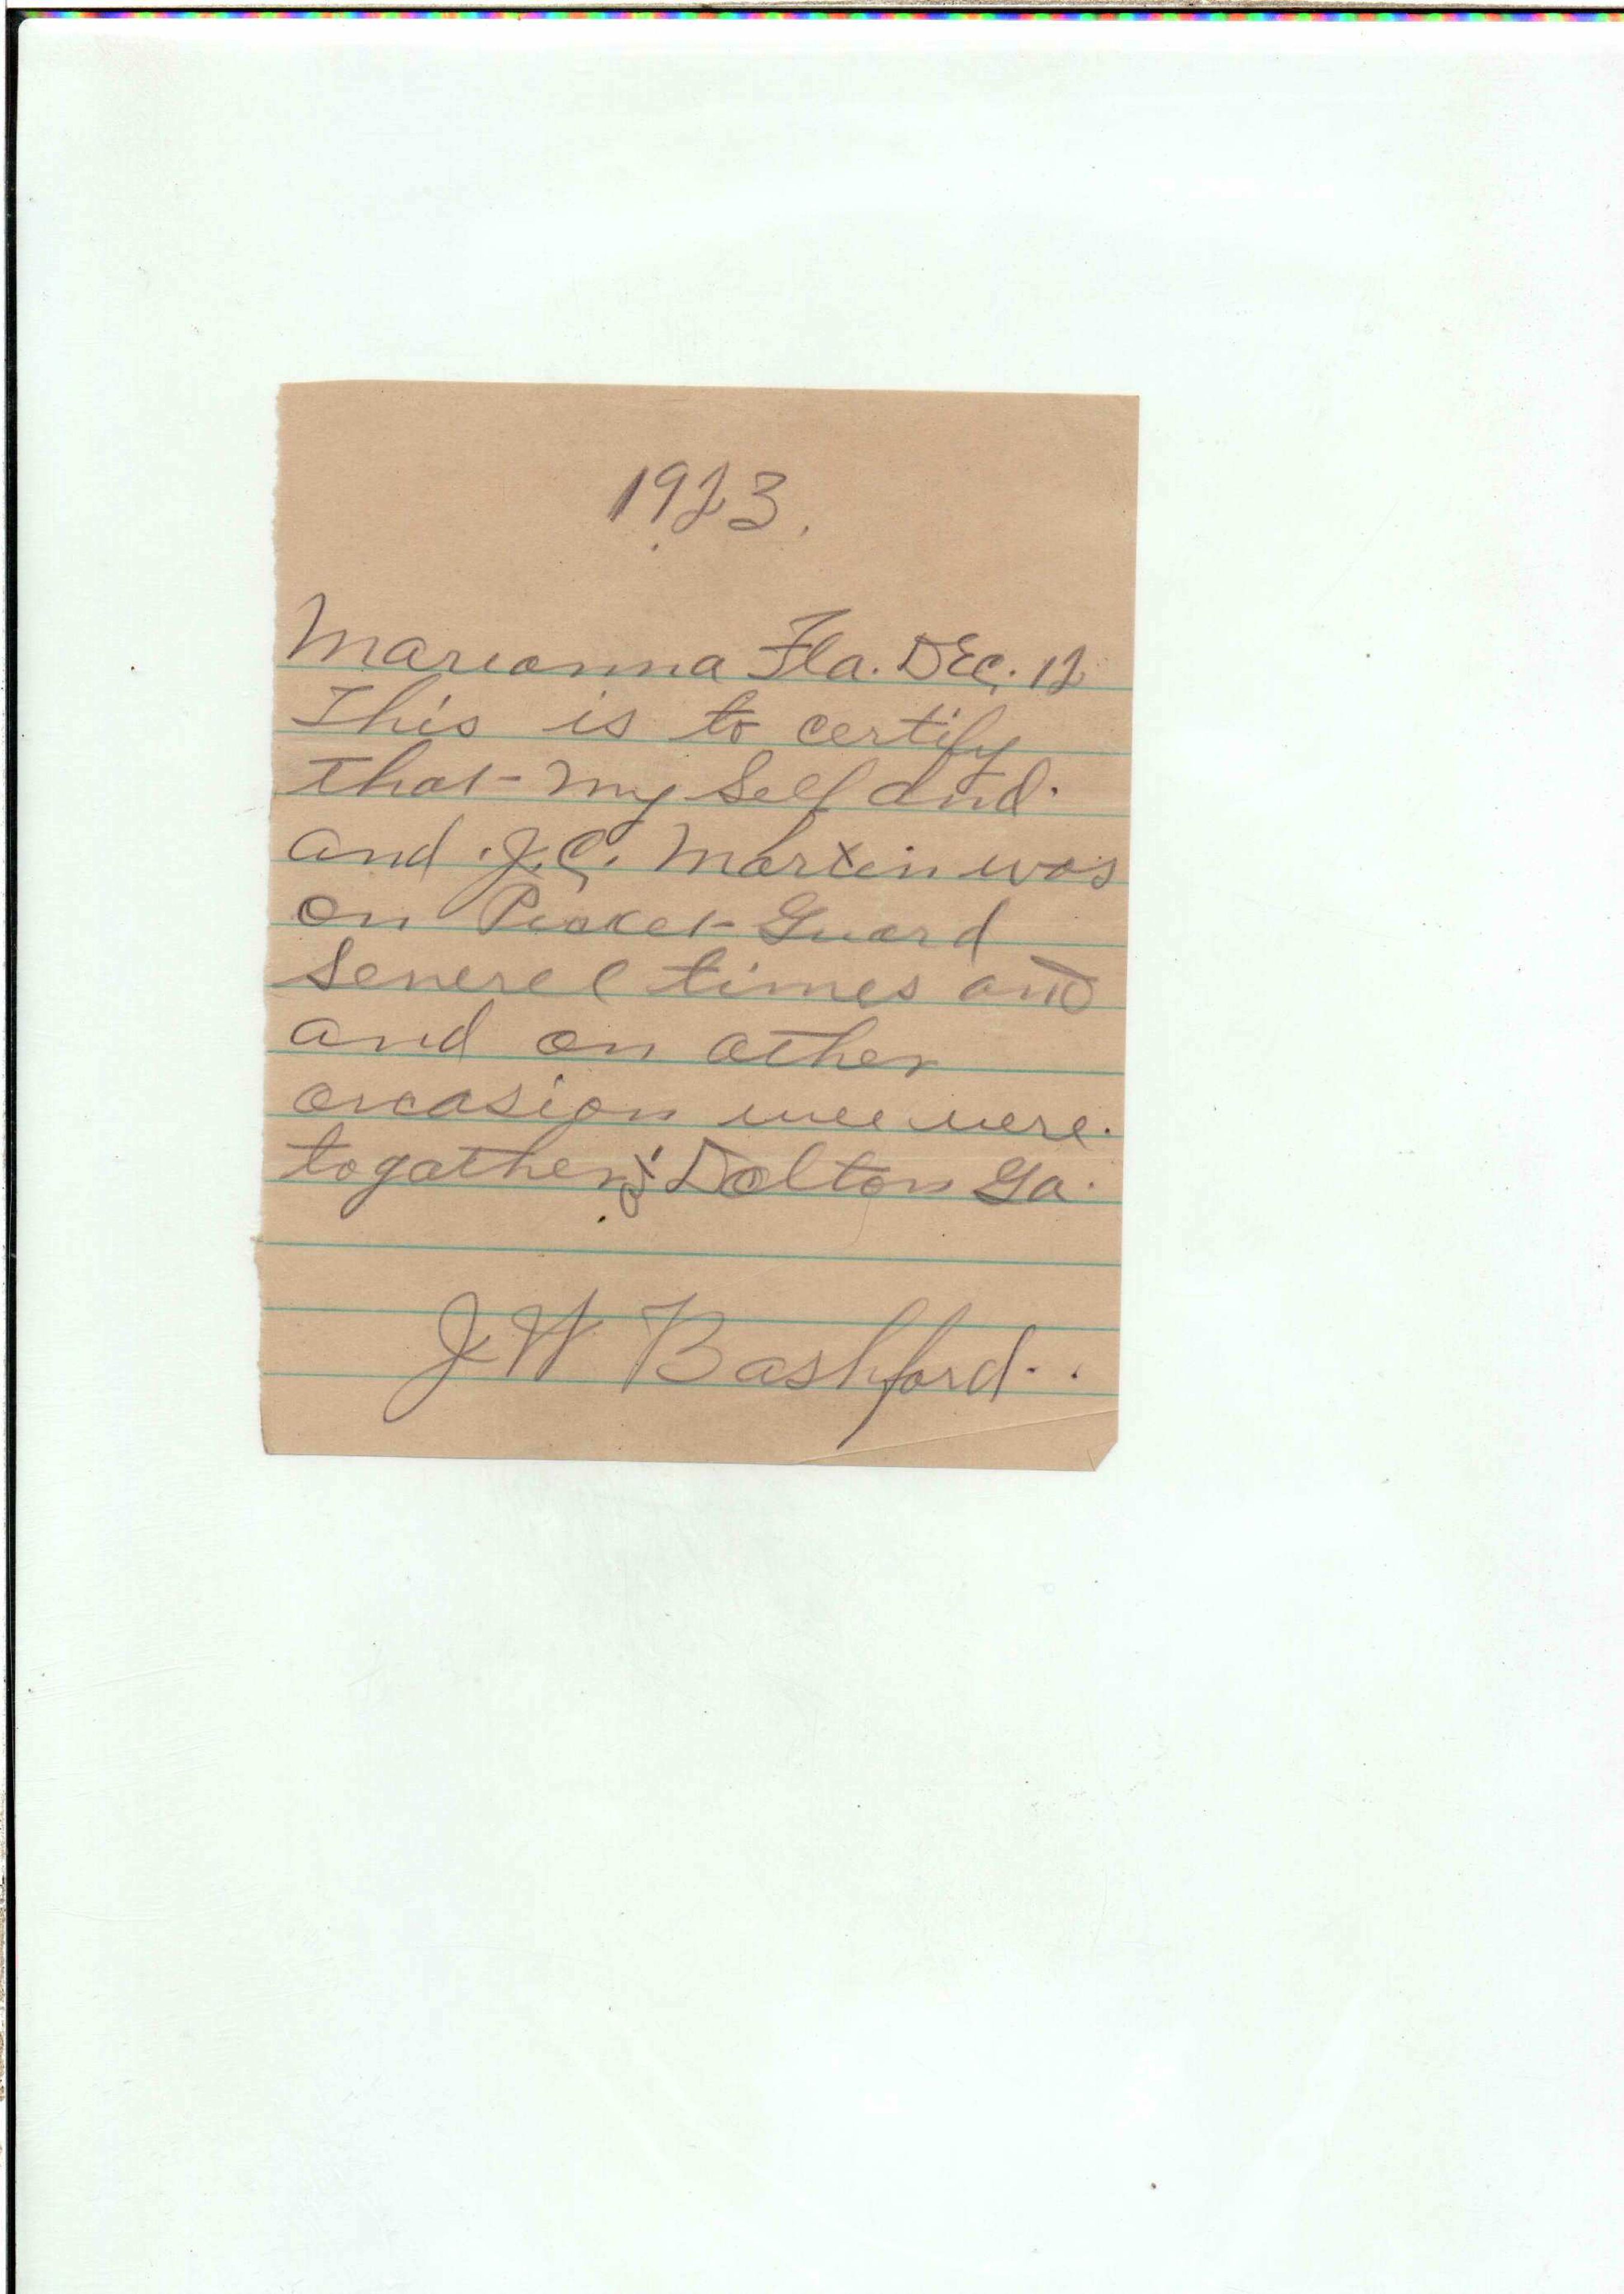 1923.
Marianna Fla. DEC. 12
This is to certify
that my Self and
and J.C. Martin was
on Picket Guard
Severel times and
and on other
orcasion wee were
togather at Dalton Ga.
J W Bashford